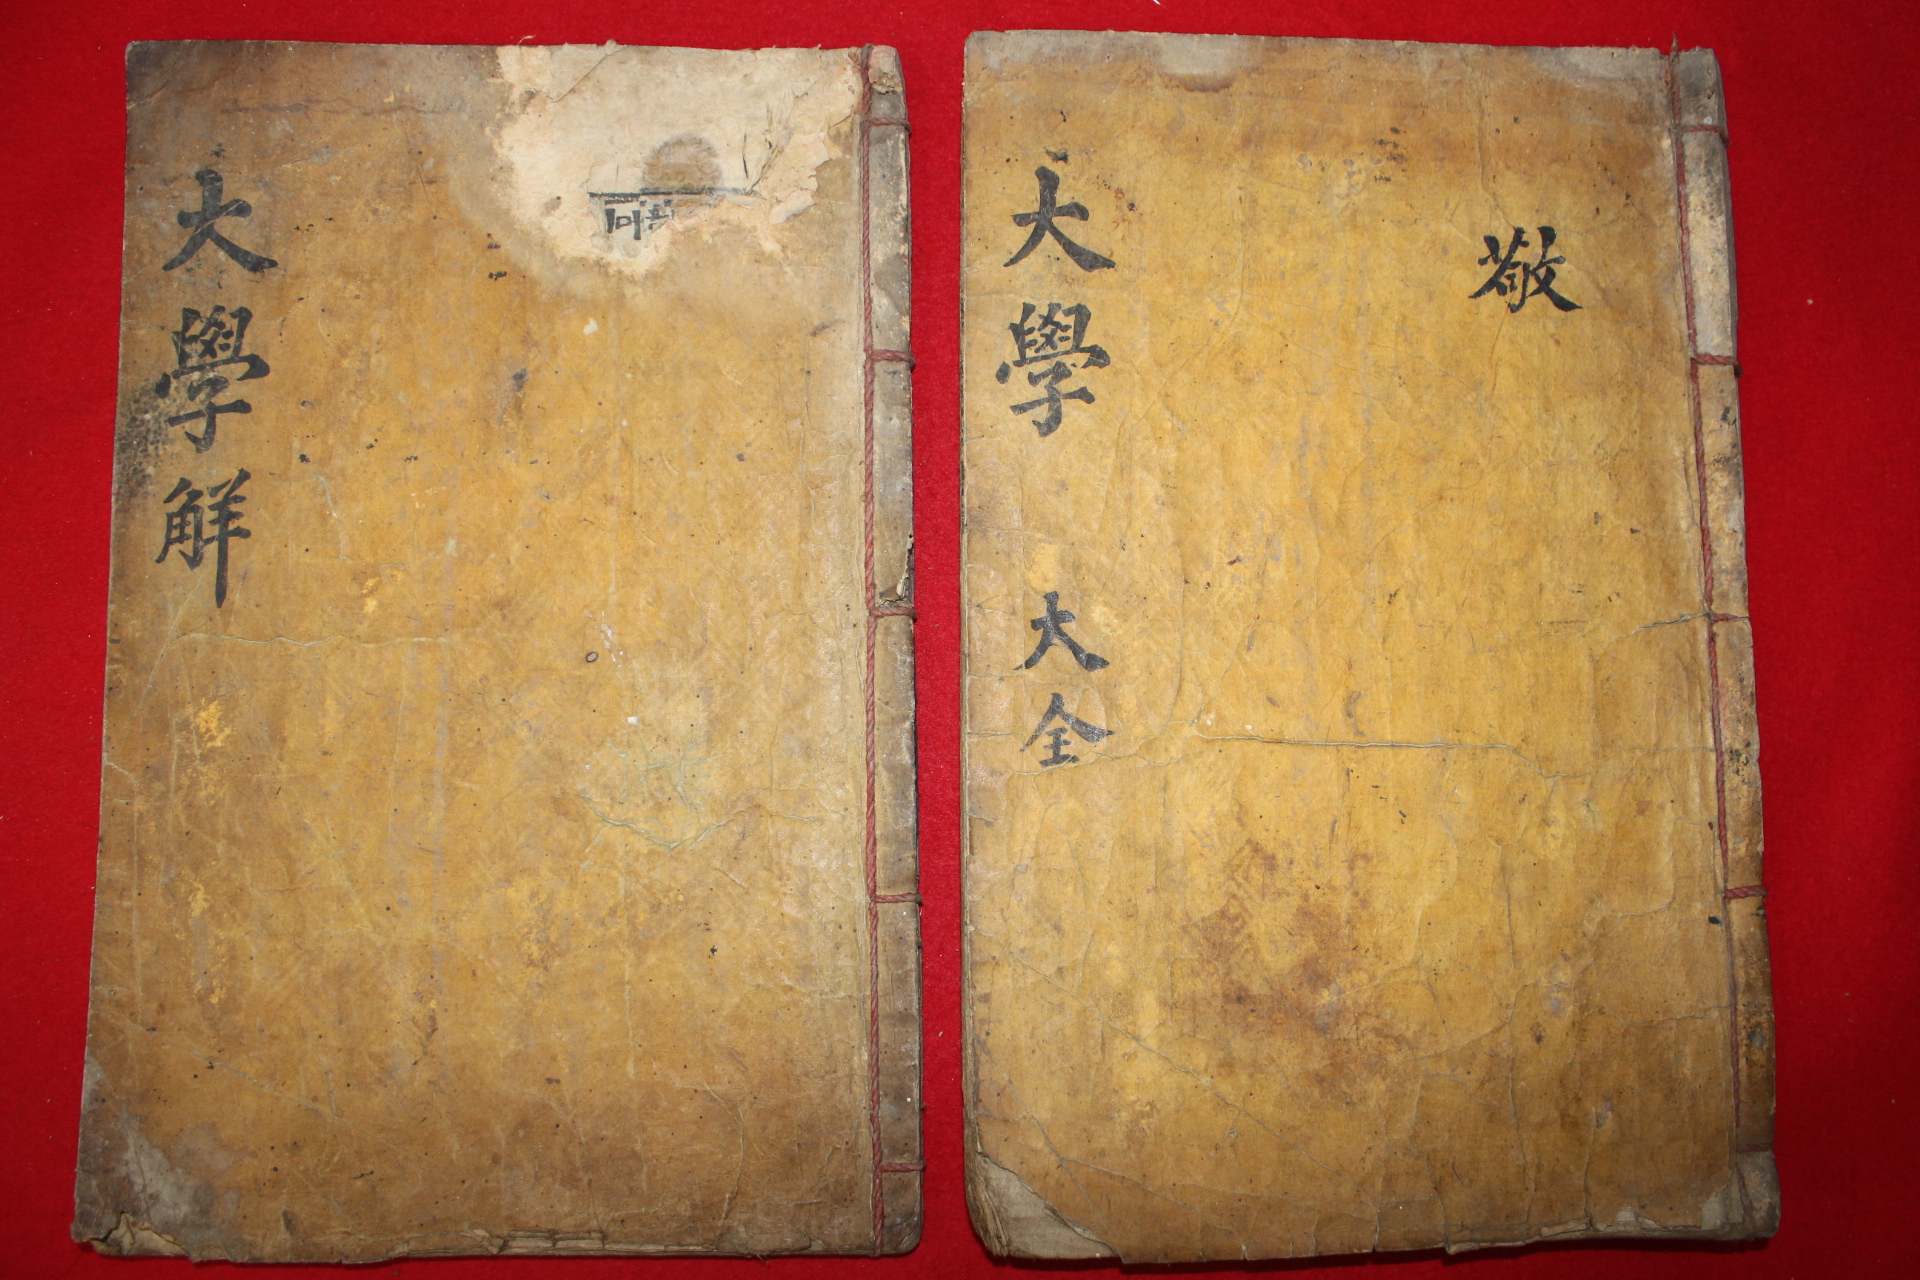 大學解
敬
大學 大全